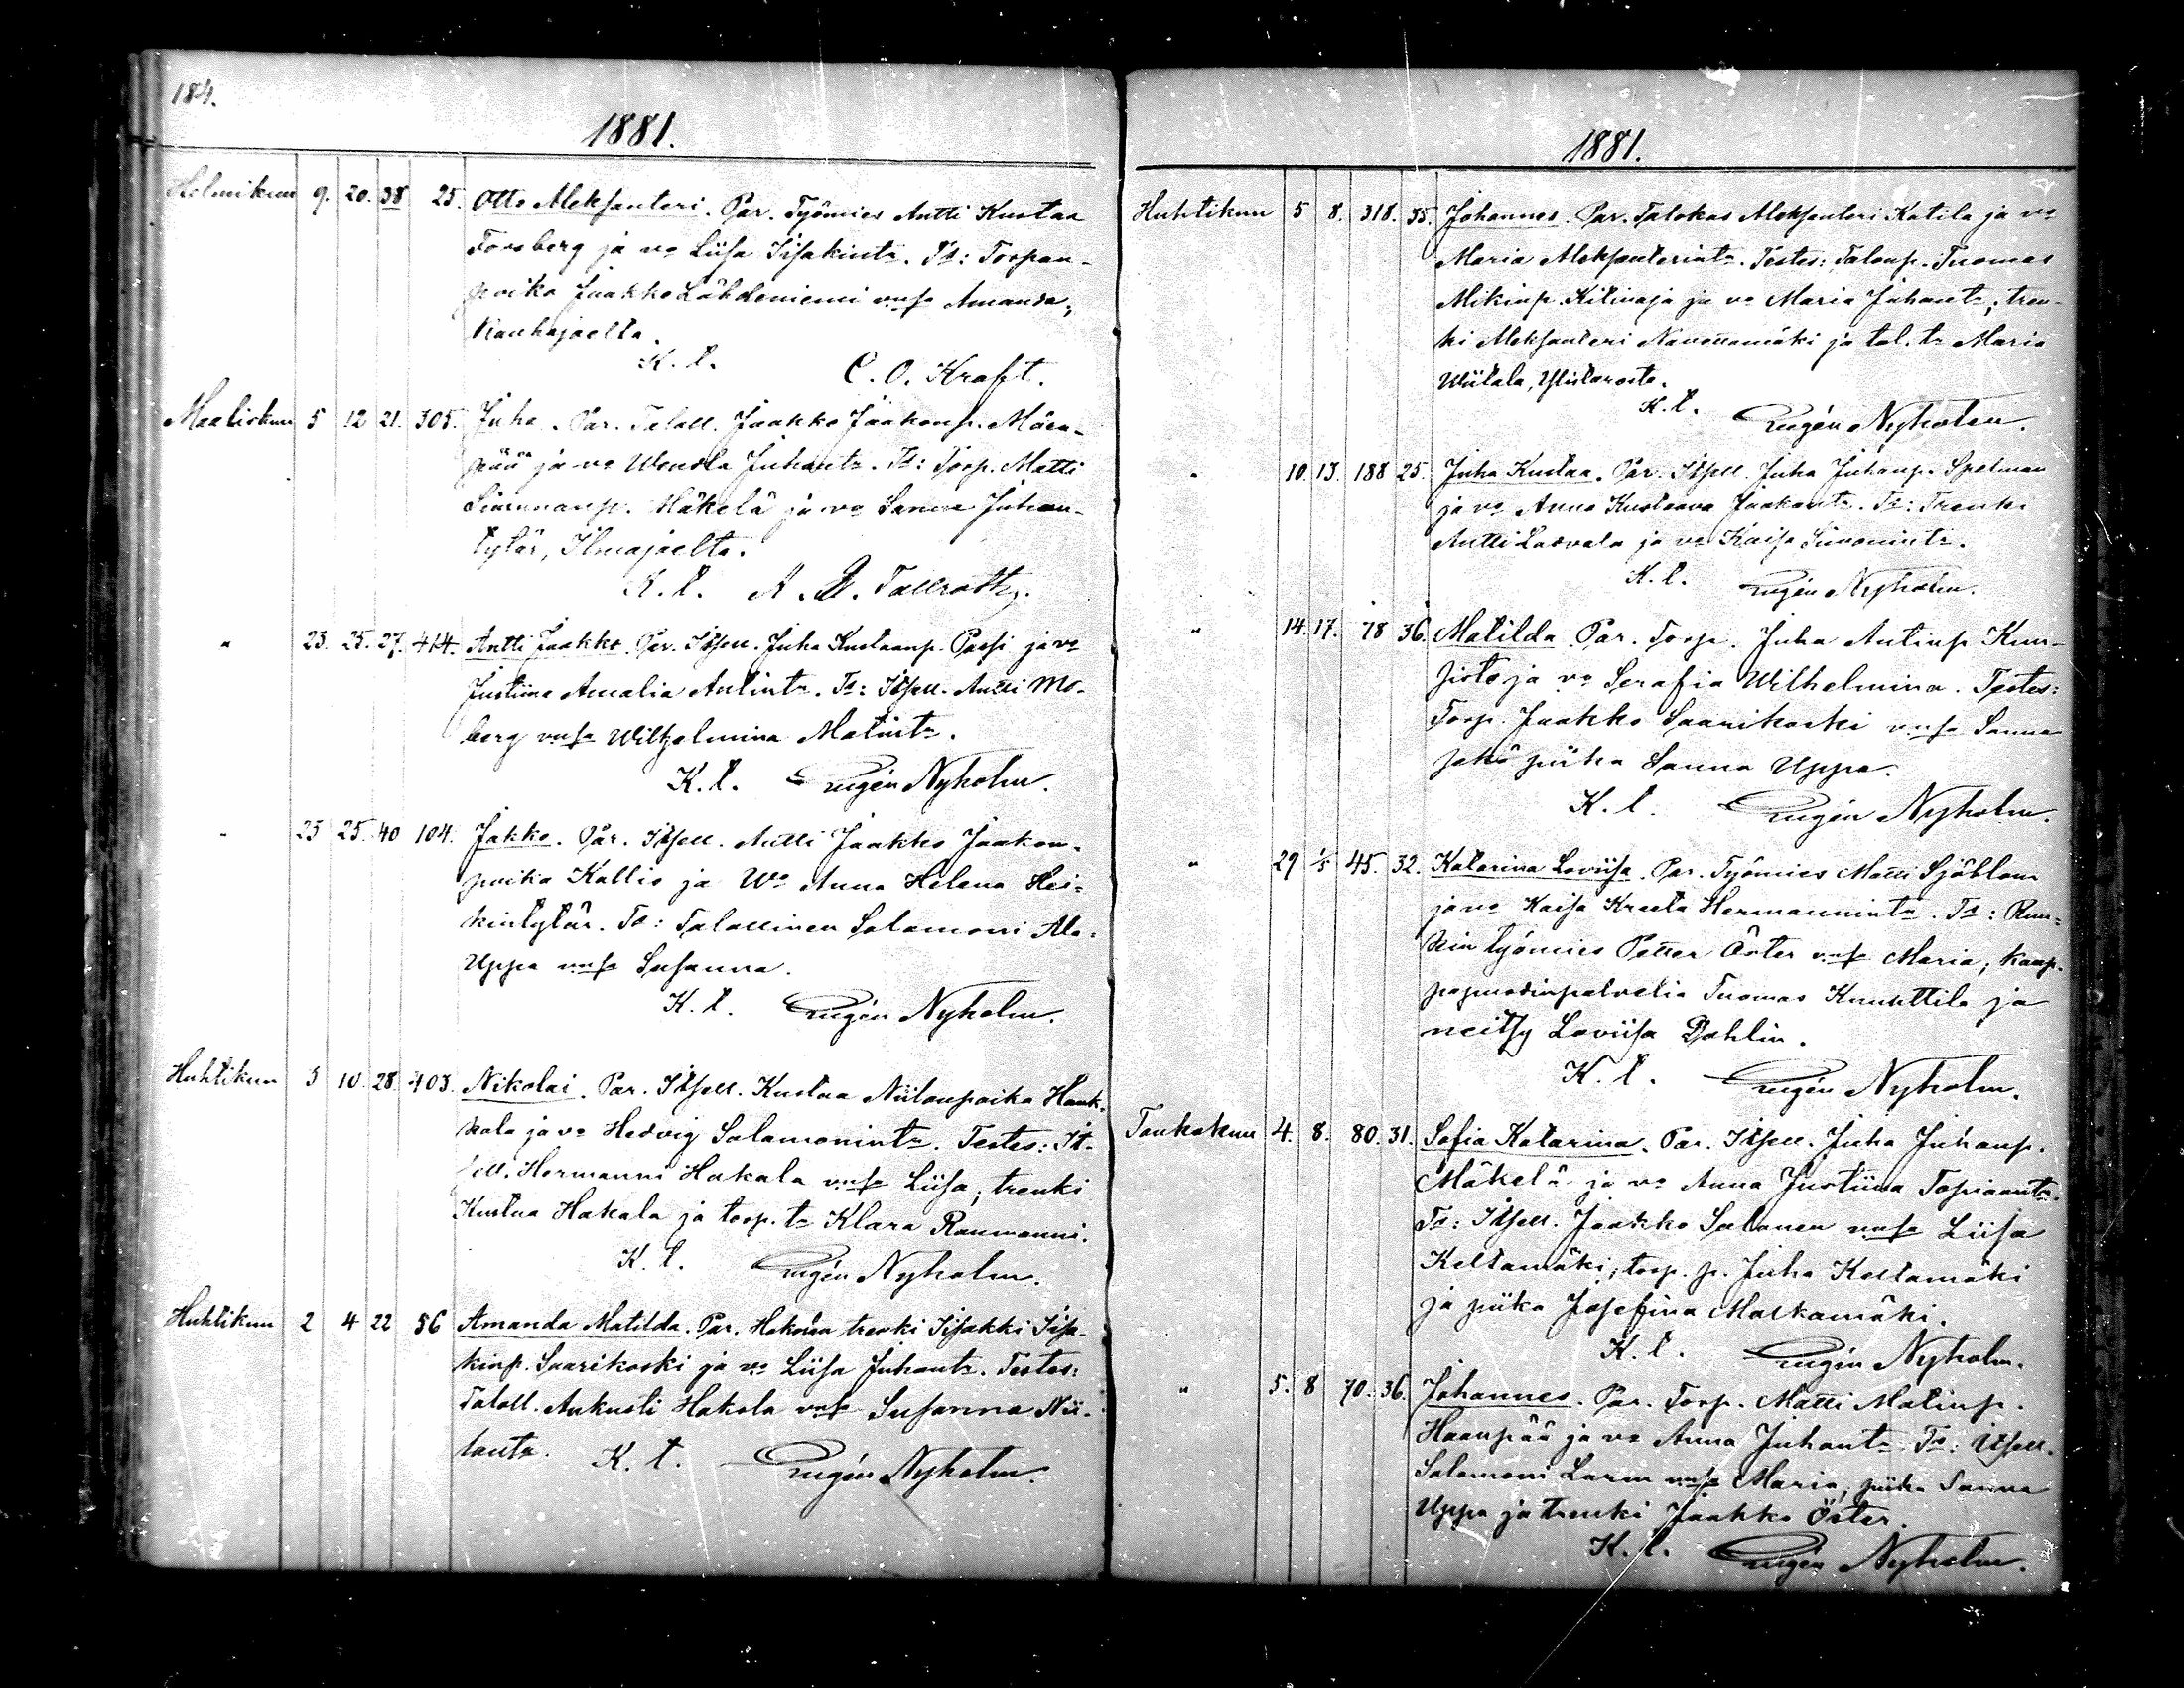 184.
1881.
Helmikuu 9. 20. 38 25. Otto Aleksanteri. Par. Työmies Antti Kustaa
Forsberg ja vo Liisa Iisakintr. Ts: Torpan-
poika Jaakko Lähdeniemi vmsa Amanda,
Kauhajoelta.
K. l. C. O. Kraft.
Maaliskuu 5 12 21. 305. Juha. Par. Talall. Jaakko Jaakonp. Mäen-
pää ja vo Wendla Juhantr. Ts: Torp. Matti
Simunanp. Mäkelä ja vo Sanna Juhan-
tytär, Ilmajoelta.
K. l. Tallroth.
" 23. 25. 27. 414. Antti Jaakko. Par. Itsell. Juha Kustaanp. Passi ja vo
Justiina Amalia Antintr. Ts: Itsell. Antti Mo-
berg vmsa Wilhelmina Matintr.
K. l. Eugén Nyholm.
" 23 25. 40 104. Jakko. Par. Itsell. Antti Jaakko Jaakon-
poika Kallio ja Wo Anna Helena Hei-
kintytär. Ts: Talollinen Salamoni Ala-
Uppa vmsa Susanna.
K. l. Eugén Nyholm.
Huhtikuu 3 10 28. 403. Nikolai. Par. Itsell. Kustaa Niilonpoika Hauk-
kala ja vo Hedvig Salamonintr. Testes: It-
sell. Hermanni Hakala vmsa Liisa; trenki
Kustaa Hakala ja torp. tr Klara Raumanni.
K. l. Eugén Nyholm.
Huhtikuu 2 4 22 56 Amanda Matilda. Par. Hakolan trenki Iisakki Iisa-
kinp. Saarikoski ja vo Liisa Juhantr. Testes:
Taloll. Aukusti Hakola vmsa Susanna Nii-
lontr. K. l. Eugén Nyholm.
1881.
Huhtikuu 5 8. 318. 35. Johannes. Par. Talokas Aleksanteri Katila ja vo
Maria Aleksanterintr. Testes: Talonp. Tuomas
Mikinp. Kitinoja ja vo Maria Juhantr; tren-
ki Aleksanteri Navettamäki ja tal. tr Maria
Wiitala, Ylistarosta.
K. l. Eugén Nyholm.
" 10. 13. 188 25. Juha Kustaa. Par. Itsell. Juha Juhanp. Spelman
ja vo Anna Kustaava Jaakontr. Ts: Trenki
Antti Lasvala ja vo Kaisa Simonintr.
K. l. Eugén Nyholm.
" 14. 17. 78 36. Matilda. Par. Torp. Juha Antinp. Kuu-
sisto ja vo Serafia Wilhelmina. Testes:
Torp. Jaakko Saarikoski vmsa Sanna
sekä piika Sanna Uppa.
K. l. Eugén Nyholm.
" 29 1/5 45. 32. Katarina Loviisa. Par. Työmies Matti Sjöblom
ja vo Kaisa Kreeta Hermannintr. Ts: Ruu-
kin työmies Petter Öster vmsa Maria; kaup-
papuodinpalvelia Tuomas Knuuttila ja
neitsy Loviisa Dahlin.
K. l. Eugén Nyholm.
Toukokuu 4. 8. 80. 31. Sofia Katarina. Par. Itsell. Juha Juhanp.
Mäkelä ja vo Anna Justiina Topiaantr.
Ts: Itsell. Jaakko Salonen vmsa Liisa
Keltamäki; torp. p. Juha Keltamäki
ja piika Josefina Matkamäki.
K. l. Eugén Nyholm.
" 5. 8 70. 36. Johannes. Par. Torp. Matti Matinp.
Haanpää ja vo Anna Juhantr. Ts: Itsell.
Salomoni Larm vmsa Maria; piika Sanna
Uppa ja trenki Jaakko Öster.
K. l. Eugén Nyholm.